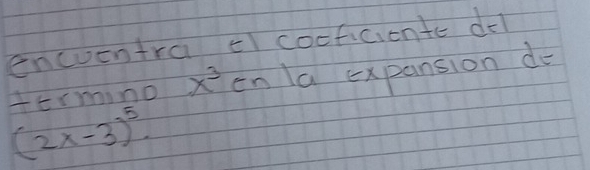 encuentra el coeficiente del
termino x³ en la expansion de
(2x-3)⁵.